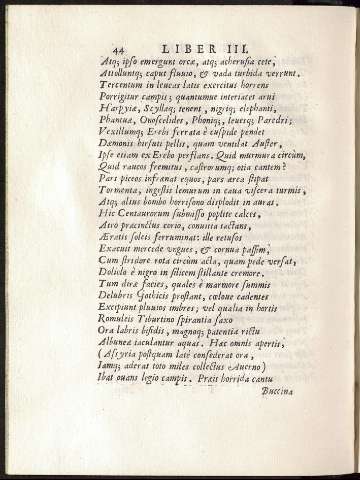 44 LIBER III.
Atq; ipso emergunt orcæ, atq; acherusia cete,
Attolluntq; caput fluuio, & vada turbida verrunt.
Tercentum in leucas latis exercitus horrens
Porrigitur campis; quantumue interiacet arui
Harpyiæ, Scyllæq; tenent, nigriq; elephanti,
Phantuæ, Onoscelides, Phoniq;, leuesq; Paredri;
Vexillumq; Erebi ferrata è cuspide pendet
Dæmonis hirsuti pellis, quam ventilat Auster,
Ipse etiam ex Erebo perflans. Quid murmura circùm,
Quid raucos fremitus, castrorumq; etia cantem?
Pars piceos infrænat equos; pars area stipat
Tormenta, ingestis lemurum in caua viscera turmis,
Atq; alius bombo horrisono displodit in auras.
Hic Centaurorum submisso poplite calces,
Atro præcinctus corio, conuitia iactans,
Æratis soleis ferruminat: ille retusos
Exacuit mercede vngues, & cornua passim,
Cum stridore rota circùm acta, quam pede versat,
Doliolo è nigro in silicem stillante cremore.
Tum diræ facies, quales è marmore summis
Delubris Gothicis prostant, cœloue cadentes
Excipiunt pluuios imbres; vel qualia in hortis
Romuleis Tiburtino spirantia saxo
Ora labris bifidis, magnoq; patentia rictu
Albuneæ iaculantur aquas. Hæc omnis apertis,
(Assyria postquam latè consederat ora,
Iamq; aderat toto miles collectus Auerno)
Ibat ouans legio campis. Præit horrida cantu
Buccina